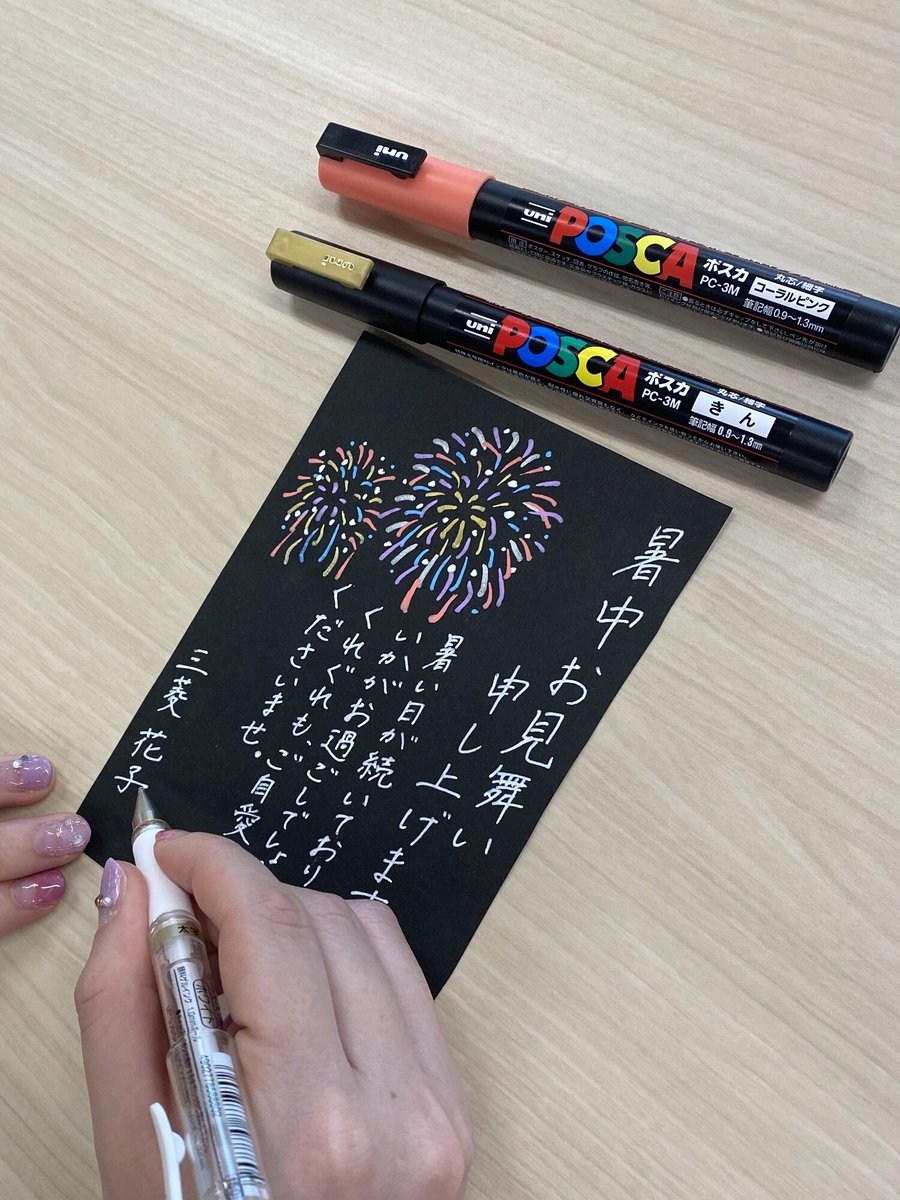 uni
uni POSCA ポスカ
PC-3M
丸芯/細字
コーラルピンク
筆記幅0.9〜1.3mm
uni
uni POSCA ポスカ
PC-3M
丸芯/細字
きん
筆記幅0.9〜1.3mm
暑中お見舞い
申し上げます
暑い日が続いており
いかがお過ごしでしょ
くれぐれもご自愛
くださいませ。
三菱 花子
ホワイト
顔料ゲルインク 1.0mmボール